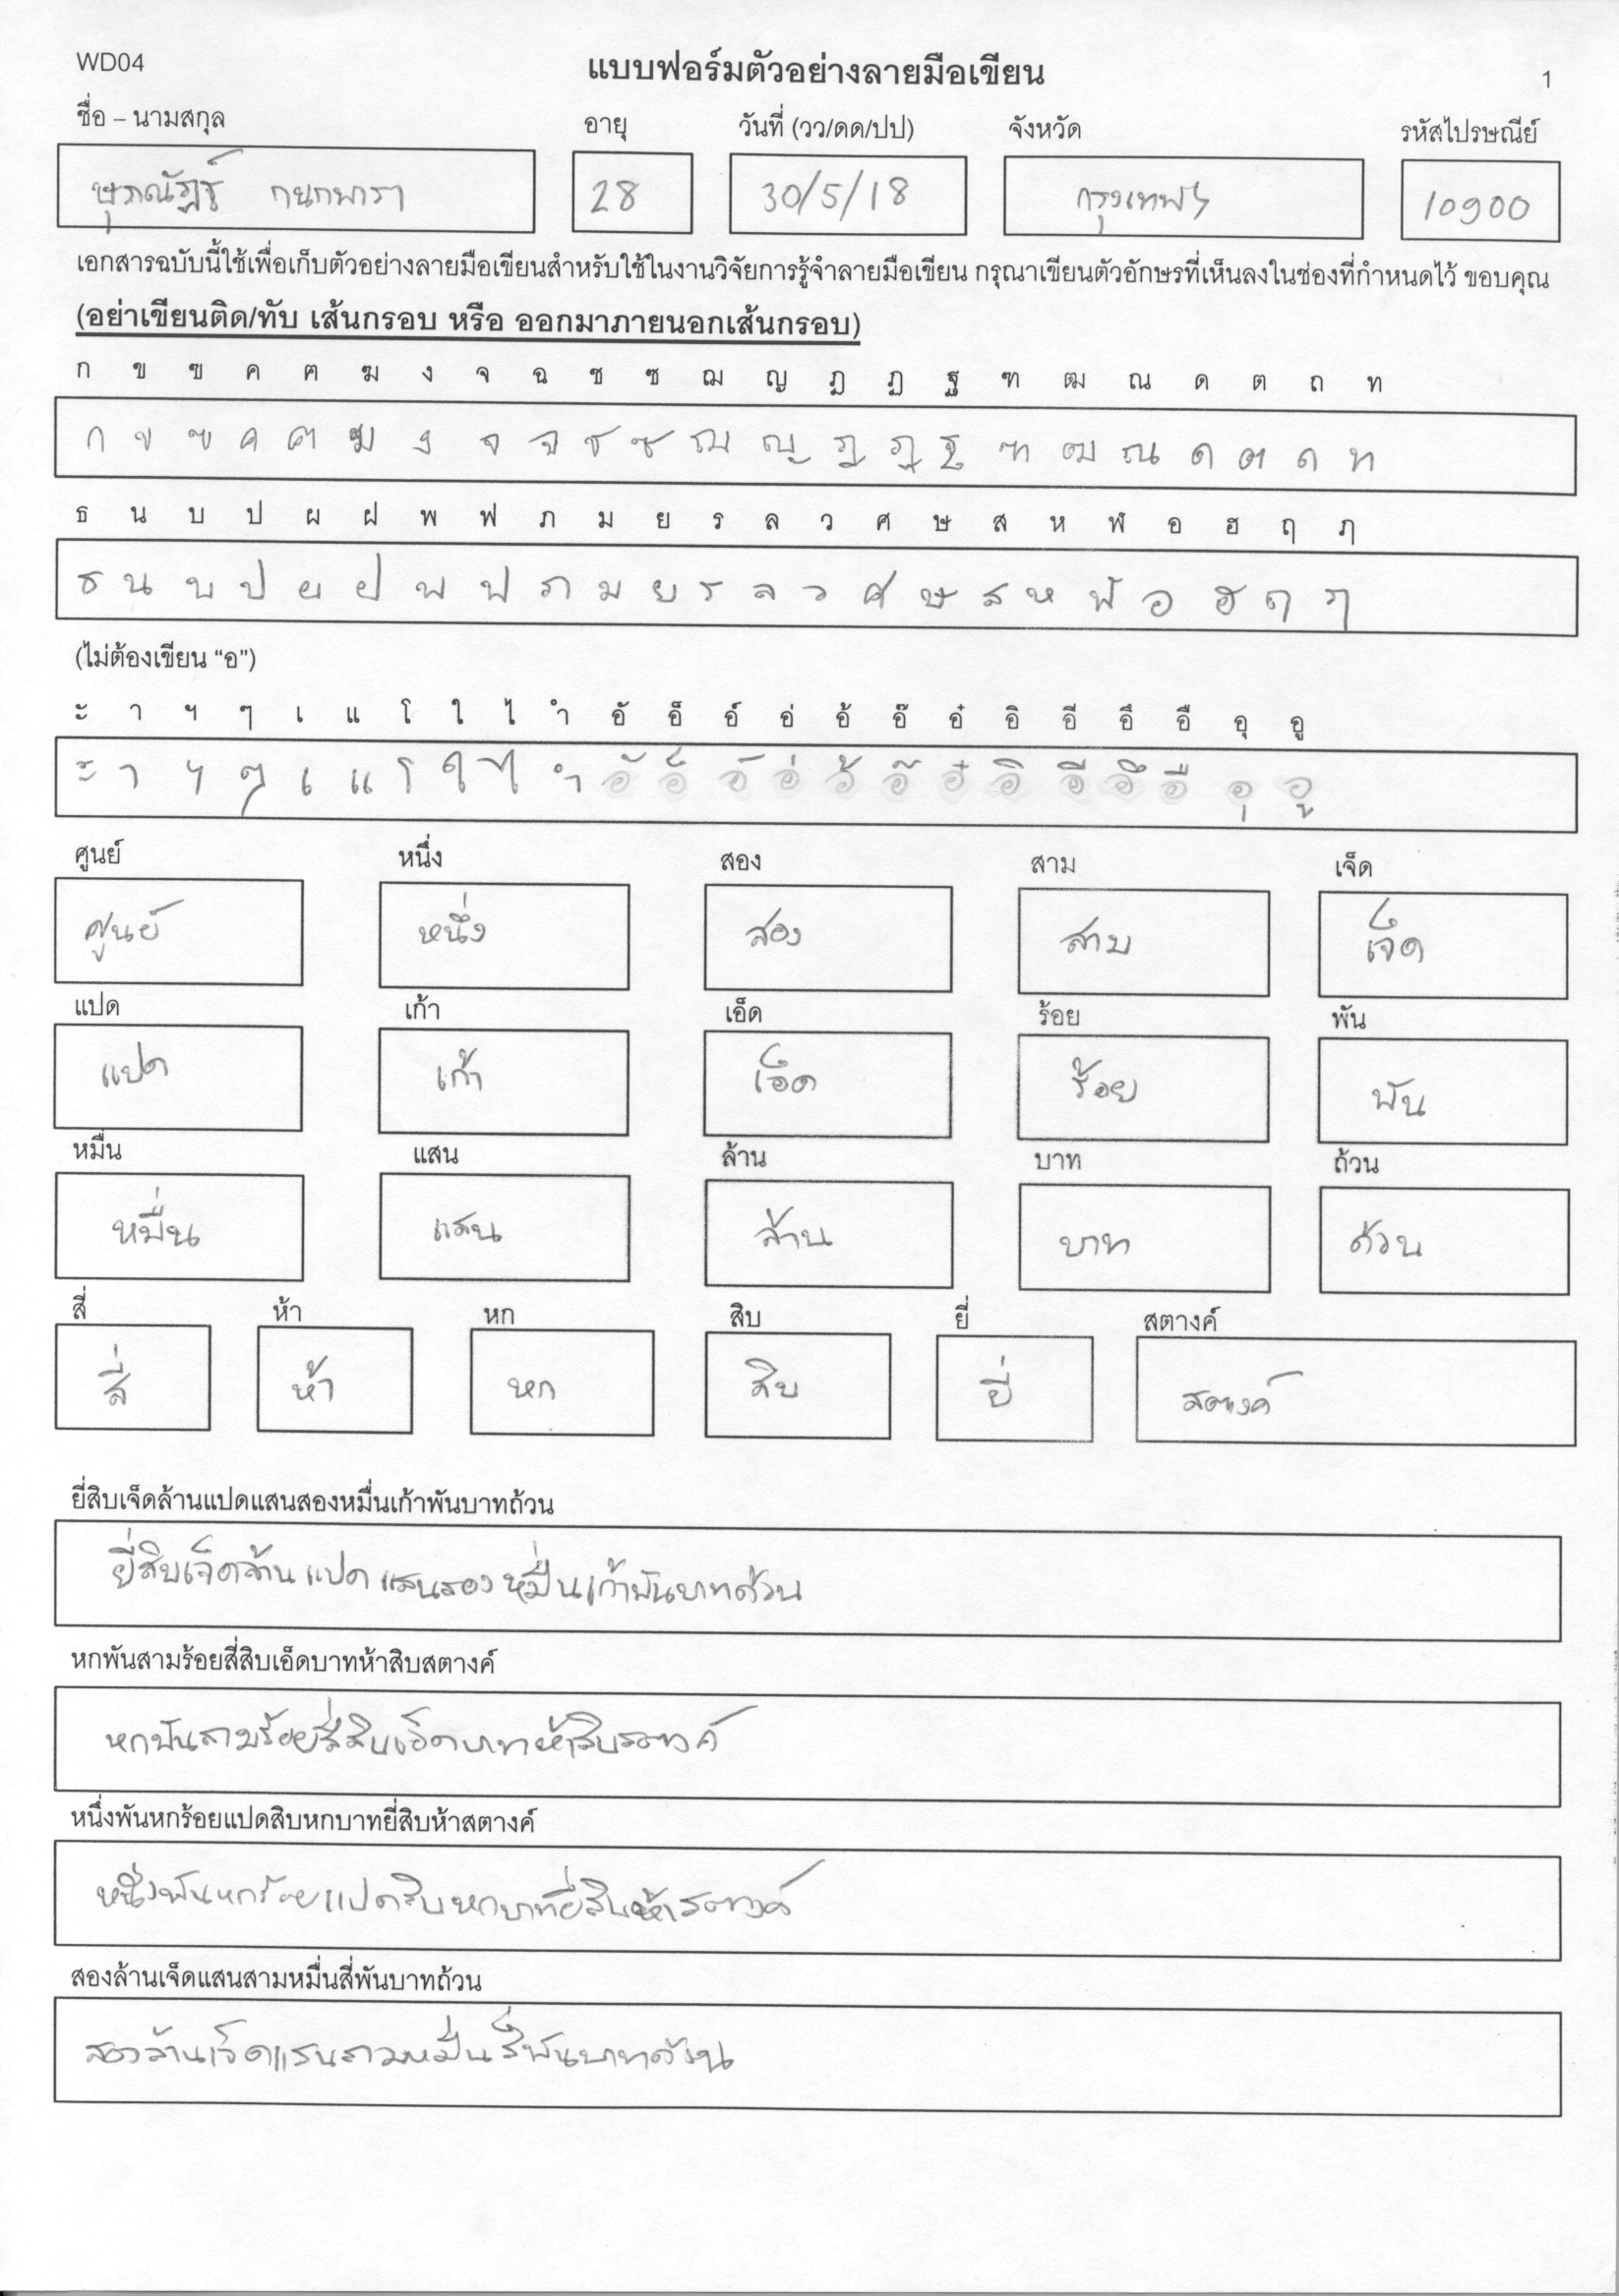 WD04 แบบฟอร์มตัวอย่างลายมือเขียน 1
ชื่อ – นามสกุล อายุ วันที่ (วว/ดด/ปป) จังหวัด รหัสไปรษณีย์
28 30/5/18 กรุงเทพฯ 10900
เอกสารฉบับนี้ใช้เพื่อเก็บตัวอย่างลายมือเขียนสำหรับใช้ในงานวิจัยการรู้จำลายมือเขียน กรุณาเขียนตัวอักษรที่เห็นลงในช่องที่กำหนดไว้ ขอบคุณ
(อย่าเขียนติด/ทับ เส้นกรอบ หรือ ออกมาภายนอกเส้นกรอบ)
ก ข ฃ ค ฅ ฆ ง จ ฉ ช ซ ฌ ญ ฎ ฏ ฐ ฑ ฒ ณ ด ต ถ ท
ก ข ฃ ค ฅ ฆ ง จ ฉ ช ซ ฌ ญ ฎ ฏ ฐ ฑ ฒ ณ ด ต ถ ท
ธ น บ ป ผ ฝ พ ฟ ภ ม ย ร ล ว ศ ษ ส ห ฬ อ ฮ ฤ ฦ
ธ น บ ป ผ ฝ พ ฟ ภ ม ย ร ล ว ศ ษ ส ห ฬ อ ฮ ฤ ฦ
(ไม่ต้องเขียน “อ”)
ะ า ฯ ๆ เ แ โ ใ ไ ำ อั อ็ อ์ อ่ อ้ อ๊ อ๋ อิ อี อึ อื อุ อู
ะ า ฯ ๆ เ แ โ ใ ไ ำ อั อ็ อ์ อ่ อ้ อ๊ อ๋ อิ อี อึ อื อุ อู
ศูนย์ หนึ่ง สอง สาม เจ็ด
ศูนย์ หนึ่ง สอง สาม เจ็ด
แปด เก้า เอ็ด ร้อย พัน
แปด เก้า เอ็ด ร้อย พัน
หมื่น แสน ล้าน บาท ถ้วน
หมื่น แสน ล้าน บาท ถ้วน
สี่ ห้า หก สิบ ยี่ สตางค์
สี่ ห้า หก สิบ ยี่ สตางค์
ยี่สิบเจ็ดล้านแปดแสนสองหมื่นเก้าพันบาทถ้วน
ยี่สิบเจ็ดล้านแปดแสนสองหมื่นเก้าพันบาทถ้วน
หกพันสามร้อยสี่สิบเอ็ดบาทห้าสิบสตางค์
หกพันสามร้อยสี่สิบเอ็ดบาทห้าสิบสตางค์
หนึ่งพันหกร้อยแปดสิบหกบาทยี่สิบห้าสตางค์
หนึ่งพันหกร้อยแปดสิบหกบาทยี่สิบห้าสตางค์
สองล้านเจ็ดแสนสามหมื่นสี่พันบาทถ้วน
สองล้านเจ็ดแสนสามหมื่นสี่พันบาทถ้วน